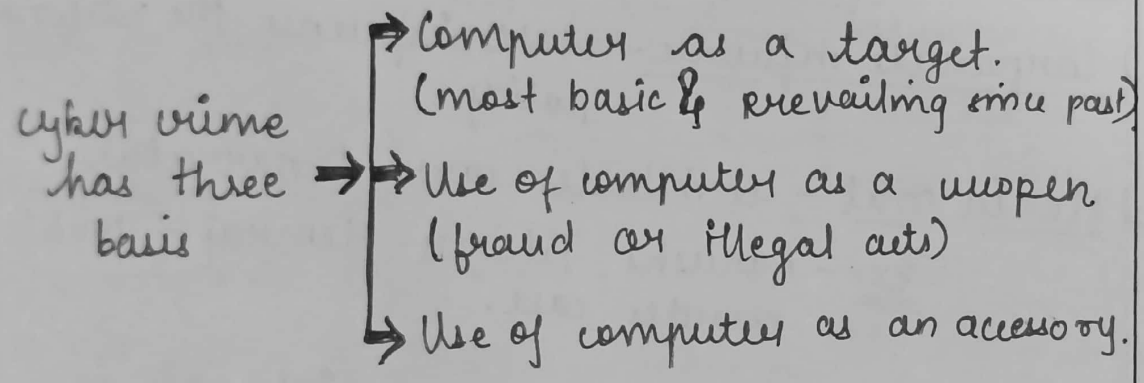 cyber crime
has three
basis
Computer as a target.
(most basic & prevailing since past)
Use of computer as a weopen
(fraud or illegal acts)
Use of computer as an accessory.